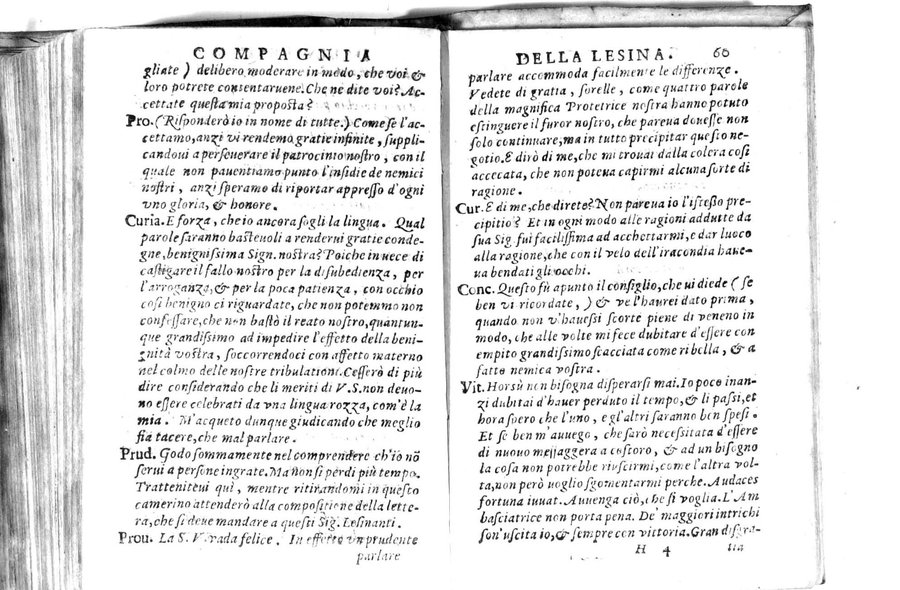 COMPAGNIA
gliate) delibero moderare in modo, che voi &
loro potrete consentaruene. Che ne dite voi? Ac-
cettate questa mia proposta?
Pro. (Risponderò io in nome di tutte.) Come se l'ac-
cettamo, anzi vi rendemo gratie infinite, suppli-
candoui a perseuerare il patrocinio nostro, con il
quale non pauentiamo punto l'insidie de nemici
nostri, anzi speramo di riportar appresso d'ogni
vno gloria, & honore.
Curia. E forza, che io ancora sogli la lingua. Qual
parole saranno basteuoli a renderui gratie conde-
gne, benignissima Sign. nostra? Poiche in vece di
castigare il fallo nostro per la disubedienza, per
l'arroganza, & per la poca patienza, con occhio
così benigno ci riguardate, che non potemmo non
confessare, che non bastò il reato nostro, quantun-
que grandissimo ad impedire l'effetto della beni-
gnità vostra, soccorrendoci con affetto materno
nel colmo delle nostre tribulationi. Cesserò di più
dire considerando che li meriti di V.S. non deuo-
no essere celebrati da vna lingua rozza, com'è la
mia. M'acqueto dunque giudicando che meglio
sia tacere, che mal parlare.
Prud. Godo sommamente nel comprendere ch'io nõ
serui a persone ingrate. Ma non si perdi più tempo.
Trattenitevi quì, mentre ritirandomi in questo
camerino attenderò alla compositione della lette-
ra, che si deue mandare a questi Sig. Lesinanti.
Prou. La S. V. vada felice. In effetto vn prudente
parlare
DELLA LESINA. 60
parlare accommoda facilmente le differenze.
Vedete di gratia, sorelle, come quattro parole
della magnifica Protetrice nostra hanno potuto
estinguere il furor nostro, che pareua douesse non
solo continuare, ma in tutto precipitar questo ne-
gotio. E dirò di me, che mi trouai dalla colera così
accecata, che non poteua capirmi alcuna sorte di
ragione.
Cur. E di me, che direte? Non pareua io l'istesso pre-
cipitio? Et in ogni modo alle ragioni addutte da
sua Sig. fui facilissima ad acchettarmi, e dar luoco
alla ragione, che con il velo dell'iracondia haue-
ua bendati gli occhi.
Conc. Questo fù apunto il consiglio, che ui diede (se
ben vi ricordate,) & ve l'haurei dato prima,
quando non v'hauessi scorte piene di veneno in
modo, che alle volte mi fece dubitare d'essere con
empito grandissimo scacciata come ribella, & a
fatto nemica vostra.
Vit. Horsù non bisogna disperarsi mai. Io poco inan-
zi dubitai d'hauer perduto il tempo, & li passi, et
hora spero che l'uno, e gl'altri saranno ben spesi.
Et se ben m'auuego, che sarò necessitata d'essere
di nuouo messaggera a costoro, & ad un bisogno
la cosa non potrebbe riuscirmi, come l'altra vol-
ta, non però uoglio sgomentarmi perche. Audaces
fortuna iuuat. Auuenga ciò, che si voglia. L'Am
basciatrice non porta pena. De' maggiori intrichi
son'uscita io, & sempre con vittoria. Gran disgra-
H 4 tia